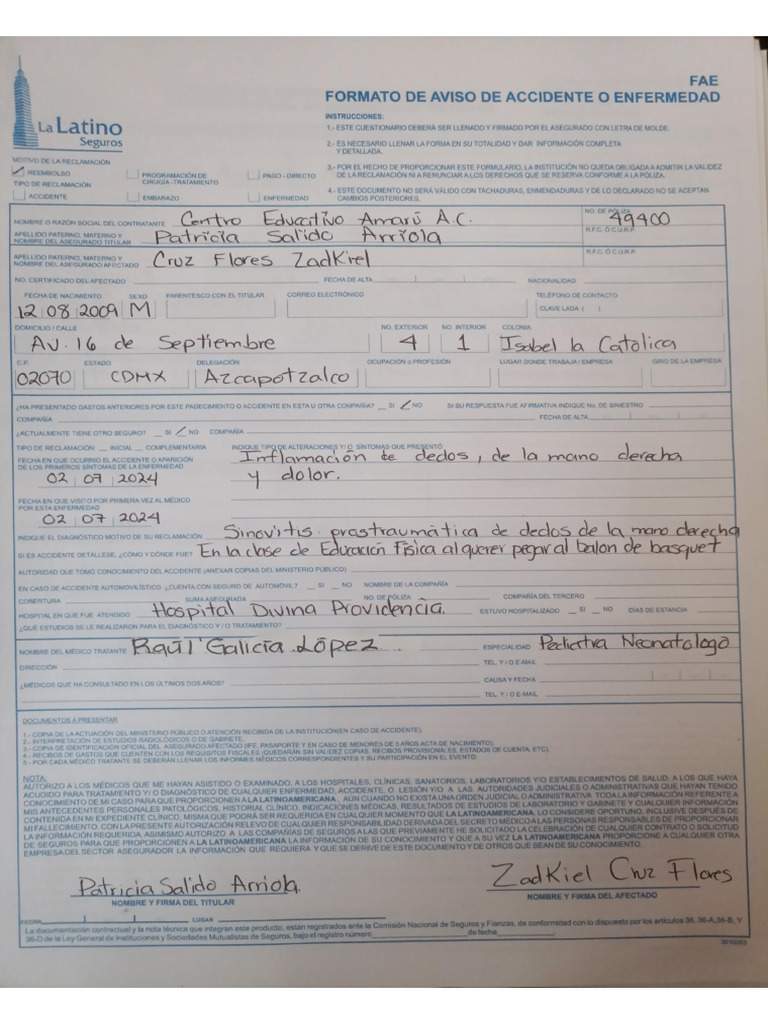 FAE
FORMATO DE AVISO DE ACCIDENTE O ENFERMEDAD
La Latino
Seguros
INSTRUCCIONES:
1.- ESTE CUESTIONARIO DEBERÁ SER LLENADO Y FIRMADO POR EL ASEGURADO CON LETRA DE MOLDE.
2.- ES NECESARIO LLENAR LA FORMA EN SU TOTALIDAD Y DAR INFORMACIÓN COMPLETA
Y DETALLADA.
3.- POR EL HECHO DE PROPORCIONAR ESTE FORMULARIO, LA INSTITUCIÓN NO QUEDA OBLIGADA A ADMITIR LA VALIDEZ
DE LA RECLAMACIÓN NI A RENUNCIAR A LOS DERECHOS QUE SE RESERVA CONFORME A LA PÓLIZA.
4.- ESTE DOCUMENTO NO SERÁ VÁLIDO CON TACHADURAS, ENMENDADURAS Y DE LO DECLARADO NO SE ACEPTAN
CAMBIOS POSTERIORES.
MOTIVO DE LA RECLAMACIÓN
REEMBOLSO PROGRAMACIÓN DE CIRUGÍA-TRATAMIENTO PAGO - DIRECTO
TIPO DE RECLAMACIÓN
ACCIDENTE EMBARAZO ENFERMEDAD
NOMBRE O RAZÓN SOCIAL DEL CONTRATANTE Centro Educativo Amarú A.C. NO. DE PÓLIZA 49400
APELLIDO PATERNO, MATERNO Y NOMBRE DEL ASEGURADO TITULAR Patricia Salido Arriola R.F.C. Ó C.U.R.P.
APELLIDO PATERNO, MATERNO Y NOMBRE DEL ASEGURADO AFECTADO Cruz Flores ZadKiel R.F.C. Ó C.U.R.P.
NO. CERTIFICADO DEL AFECTADO FECHA DE ALTA NACIONALIDAD
FECHA DE NACIMIENTO SEXO PARENTESCO CON EL TITULAR CORREO ELECTRÓNICO TELÉFONO DE CONTACTO
12 08 2009 M CLAVE LADA ( )
DOMICILIO / CALLE NO. EXTERIOR NO. INTERIOR COLONIA
Av. 16 de Septiembre 4 1 Isabel la Catolica
C.P. ESTADO DELEGACIÓN OCUPACIÓN o PROFESIÓN LUGAR DONDE TRABAJA / EMPRESA GIRO DE LA EMPRESA
02070 CDMX Azcapotzalco
¿HA PRESENTADO GASTOS ANTERIORES POR ESTE PADECIMIENTO O ACCIDENTE EN ESTA U OTRA COMPAÑÍA? SI NO SI SU RESPUESTA FUE AFIRMATIVA INDIQUE No. DE SINIESTRO
COMPAÑÍA FECHA DE ALTA
¿ACTUALMENTE TIENE OTRO SEGURO? SI NO COMPAÑÍA
TIPO DE RECLAMACIÓN INICIAL COMPLEMENTARIA INDIQUE TIPO DE ALTERACIONES Y/ O SÍNTOMAS QUE PRESENTÓ
Inflamación de dedos, de la mano derecha
FECHA EN QUE OCURRIÓ EL ACCIDENTE O APARICIÓN
DE LOS PRIMEROS SÍNTOMAS DE LA ENFERMEDAD
02 07 2024 y dolor.
FECHA EN QUE VISITO POR PRIMERA VEZ AL MÉDICO
POR ESTA ENFERMEDAD
02 07 2024
INDIQUE EL DIAGNÓSTICO MOTIVO DE SU RECLAMACIÓN Sinovitis prostraumática de dedos de la mano derecha
SI ES ACCIDENTE DETÁLLESE, ¿CÓMO Y DÓNDE FUE? En la clase de Educación Física al querer pegar al balon de basquet
AUTORIDAD QUE TOMÓ CONOCIMIENTO DEL ACCIDENTE (ANEXAR COPIAS DEL MINISTERIO PÚBLICO)
EN CASO DE ACCIDENTE AUTOMOVILÍSTICO ¿CUENTA CON SEGURO DE AUTOMÓVIL? SI NO NOMBRE DE LA COMPAÑÍA
COBERTURA SUMA ASEGURADA NO. DE PÓLIZA COMPAÑÍA DEL TERCERO
HOSPITAL EN QUE FUE ATENDIDO Hospital Divina Providencia. ESTUVO HOSPITALIZADO SI NO DÍAS DE ESTANCIA
¿QUÉ ESTUDIOS SE LE REALIZARON PARA EL DIAGNÓSTICO Y / O TRATAMIENTO?
NOMBRE DEL MÉDICO TRATANTE Raúl Galicia López ESPECIALIDAD Pediatra Neonatologo
DIRECCIÓN TEL. Y / O E-MAIL
¿MÉDICOS QUE HA CONSULTADO EN LOS ÚLTIMOS DOS AÑOS? CAUSA Y FECHA
TEL. Y / O E-MAIL
DOCUMENTOS A PRESENTAR
1.- COPIA DE LA ACTUACIÓN DEL MINISTERIO PÚBLICO O ATENCIÓN RECIBIDA DE LA INSTITUCIÓN(EN CASO DE ACCIDENTE).
2.- INTERPRETACIÓN DE ESTUDIOS RADIOLÓGICOS O DE GABINETE.
3.- COPIA DE IDENTIFICACIÓN OFICIAL DEL ASEGURADO AFECTADO (IFE, PASAPORTE Y EN CASO DE MENORES DE 5 AÑOS ACTA DE NACIMIENTO).
4.- RECIBOS DE GASTOS QUE CUENTEN CON LOS REQUISITOS FISCALES (QUEDARÁN SIN VALIDEZ COPIAS, RECIBOS PROVISIONALES, ESTADOS DE CUENTA, ETC).
5.- POR CADA MÉDICO TRATANTE SE DEBERÁN LLENAR LOS INFORMES MÉDICOS CORRESPONDIENTES Y SU PARTICIPACIÓN EN EL EVENTO.
NOTA:
AUTORIZO A LOS MÉDICOS QUE ME HAYAN ASISTIDO O EXAMINADO, A LOS HOSPITALES, CLÍNICAS, SANATORIOS, LABORATORIOS Y/O ESTABLECIMIENTOS DE SALUD, A LOS QUE HAYA
ACUDIDO PARA TRATAMIENTO Y/ O DIAGNÓSTICO DE CUALQUIER ENFERMEDAD, ACCIDENTE, O LESIÓN Y/O A LAS AUTORIDADES JUDICIALES O ADMINISTRATIVAS QUE HAYAN TENIDO
CONOCIMIENTO DE MI CASO PARA QUE PROPORCIONEN A LA LATINOAMERICANA, AUN CUANDO NO EXISTA UNA ORDEN JUDICIAL O ADMINISTRATIVA, TODA LA INFORMACIÓN REFERENTE A
MIS ANTECEDENTES PERSONALES PATOLÓGICOS, HISTORIAL CLÍNICO, INDICACIONES MÉDICAS, RESULTADOS DE ESTUDIOS DE LABORATORIO Y GABINETE Y CUALQUIER INFORMACIÓN
CONTENIDA EN MI EXPEDIENTE CLÍNICO, MISMA QUE PODRÁ SER REQUERIDA EN CUALQUIER MOMENTO QUE LA LATINOAMERICANA, LO CONSIDERE OPORTUNO, INCLUSIVE DESPUÉS DE
MI FALLECIMIENTO, CON LA PRESENTE AUTORIZACIÓN RELEVO DE CUALQUIER RESPONSABILIDAD DERIVADA DEL SECRETO MÉDICO A LAS PERSONAS RESPONSABLES DE PROPORCIONAR
LA INFORMACIÓN REQUERIDA ASIMISMO AUTORIZO A LAS COMPAÑÍAS DE SEGUROS A LAS QUE PREVIAMENTE HE SOLICITADO LA CELEBRACIÓN DE CUALQUIER CONTRATO O SOLICITUD
DE SEGUROS PARA QUE PROPORCIONEN A LA LATINOAMERICANA LA INFORMACIÓN DE SU CONOCIMIENTO Y QUE A SU VEZ LA LATINOAMERICANA PROPORCIONE A CUALQUIER OTRA
EMPRESA DEL SECTOR ASEGURADOR LA INFORMACIÓN QUE REQUIERA Y QUE SE DERIVE DE ESTE DOCUMENTO Y DE OTROS QUE SEAN DE SU CONOCIMIENTO.
Patricia Salido Arriola. ZadKiel Cruz Flores
NOMBRE Y FIRMA DEL TITULAR NOMBRE Y FIRMA DEL AFECTADO
FECHA LUGAR
La documentación contractual y la nota técnica que integran este producto, están registrados ante la Comisión Nacional de Seguros y Fianzas, de conformidad con lo dispuesto por los artículos 36, 36-A,36-B, Y
36-D de la Ley General de Instituciones y Sociedades Mutualistas de Seguros, bajo el registro número de fecha